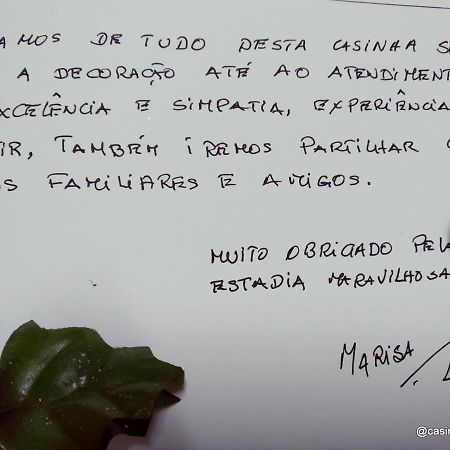 AMOS DE TUDO DESTA CASINHA S
A DECORAÇÃO ATÉ AO ATENDIMENT
XCELÊNCIA E SIMPATIA, EXPERIÊNCIA
IR, TAMBÉM IREMOS PARTILHAR
OS FAMILIARES E AMIGOS.
MUITO OBRIGADO PELA
ESTADIA MARAVILHOSA
MARISA /
@casin